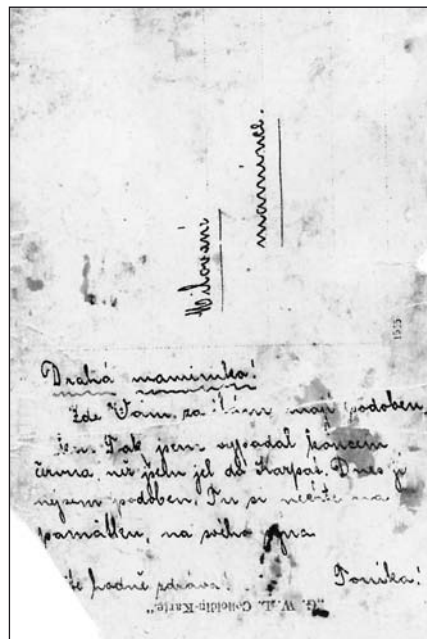 Milované
mamince.
Drahá maminko!
Zde Vám, zasílám moji podoben,
Tak jsem vypadal koncem
června, než jsem jel do Karpat. Dnes ji
nejsem podoben. Tu si nechte na
památku, na svého syna
hodně zdráva! Toníka!